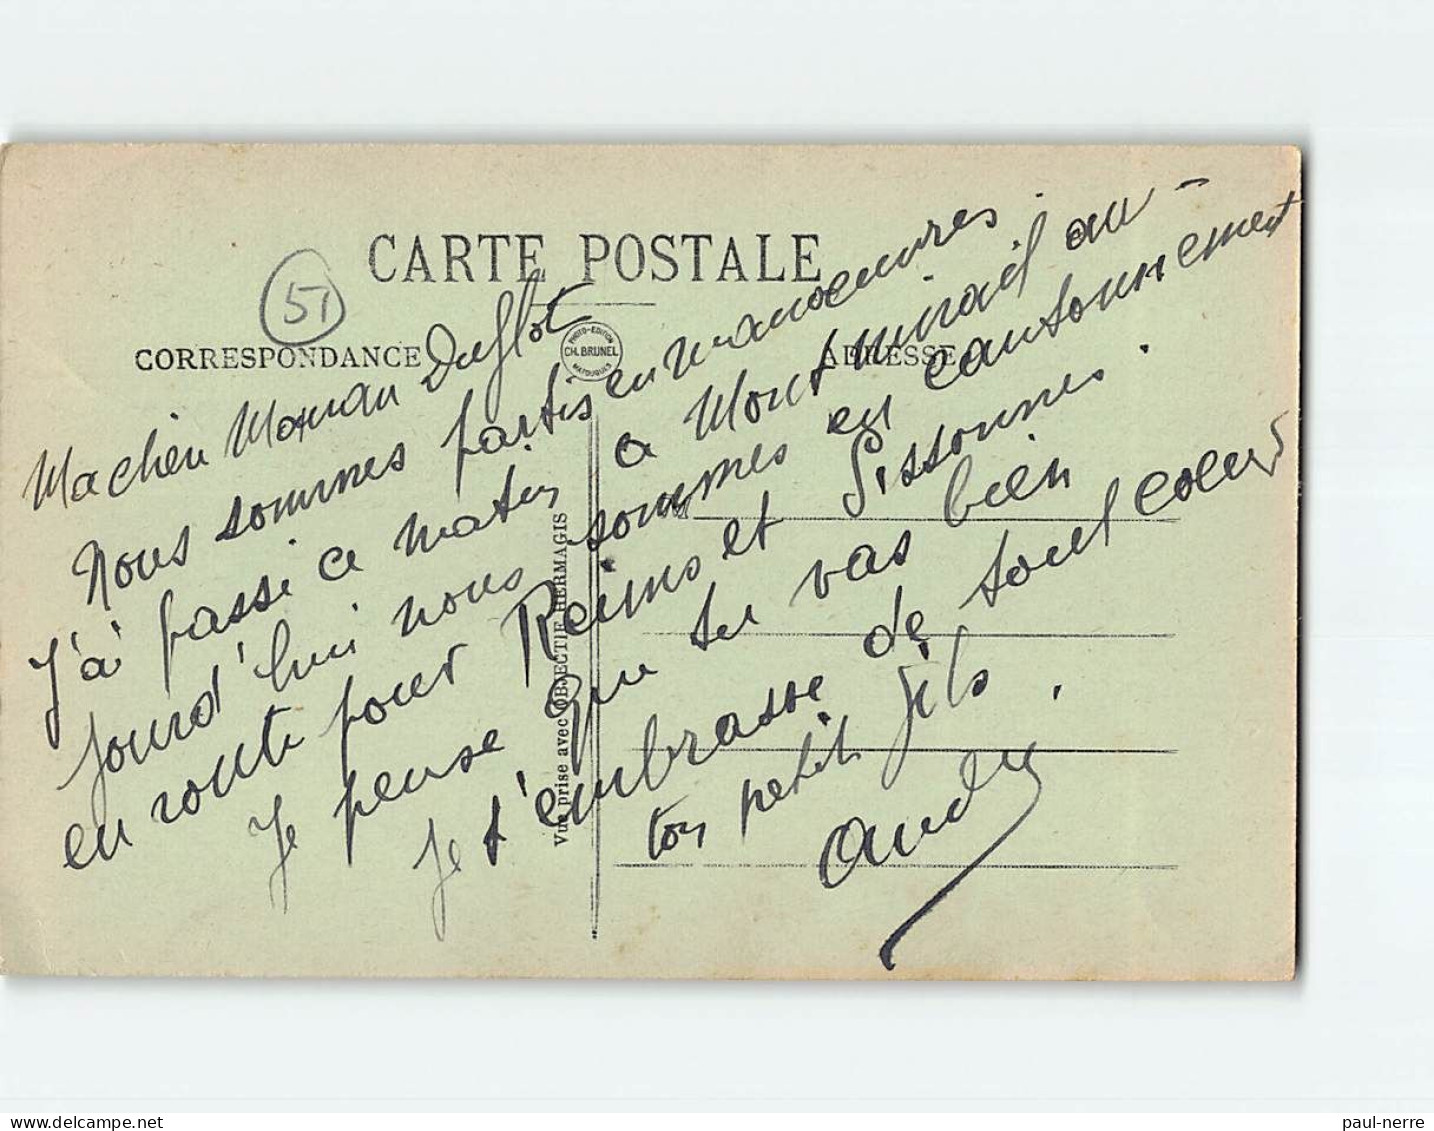 CARTE POSTALE
51
CORRESPONDANCE
PHOTO-EDITION
CH. BRUNEL
MATOUGUES
ADRESSE
Ma chère Maman Duflot
Nous sommes partis en manoeuvres.
J'ai passé ce matin a Montmirail au-
jourd'hui nous sommes en cantonnement
en route pour Reims et Sissonnes.
Je pense que tu vas bien
Je t'embrasse de tout coeur
ton petit fils.
André
Vue prise avec OBJECTIF HERMAGIS
paul-nerre